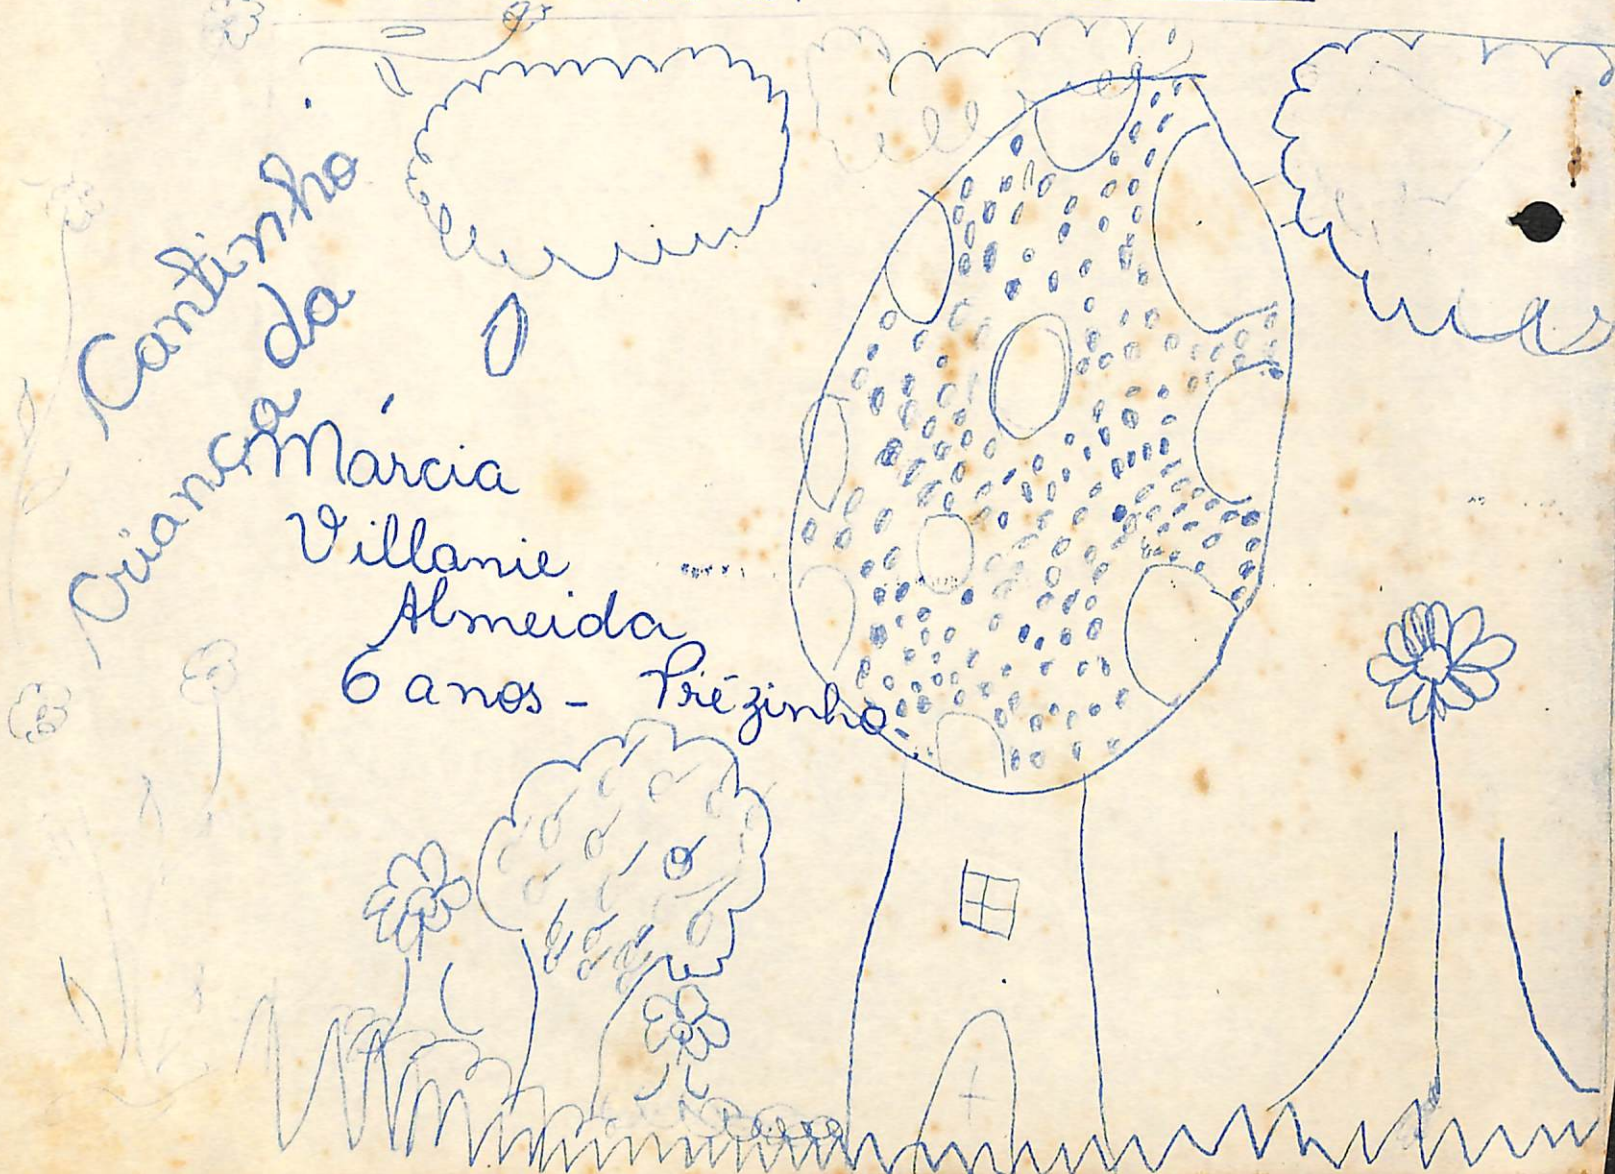 Cantinho
da
Criança
Márcia
Villanie
Almeida
6 anos - Prézinho